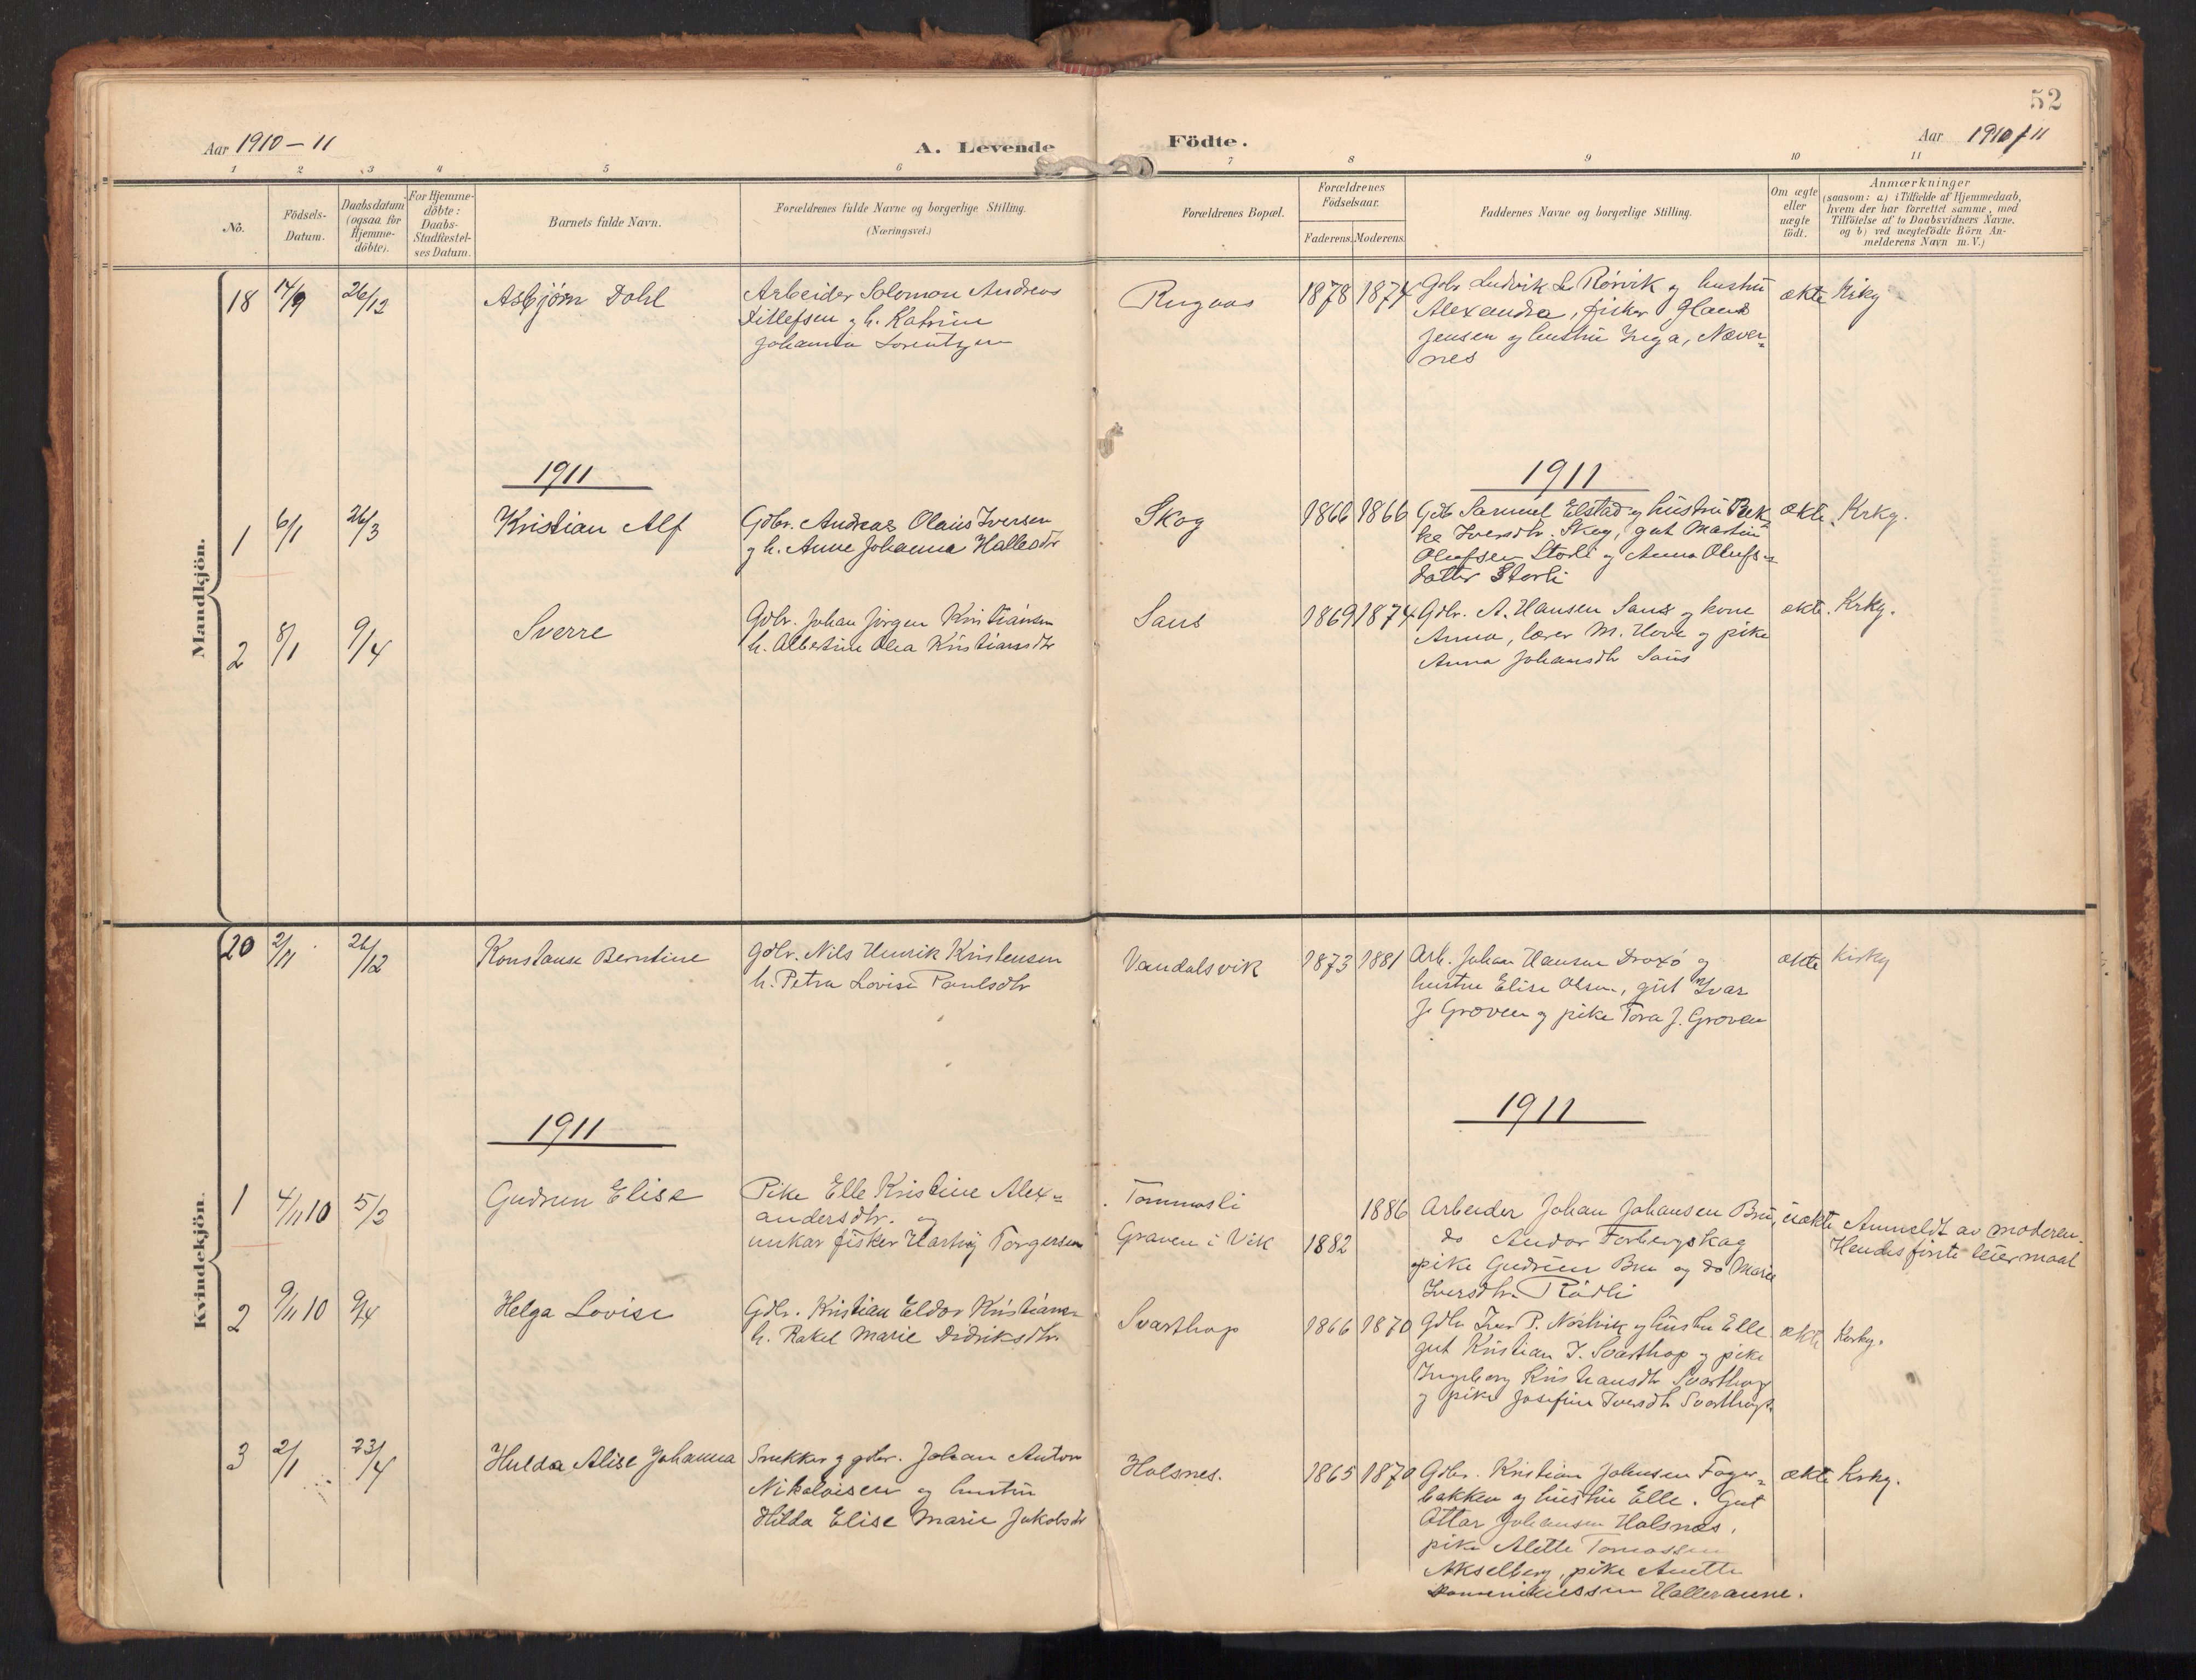 52
Aar 1910-11
A. Levende
Födte.
Aar 1910/11
1 2 3 4 5 6 7 8 9 10 11
No.
Födsels-
Datum.
Daabsdatum
(ogsaa for
Hjemme-
döbte).
For Hjemme-
döbte:
Daabs-
Stadfæstel-
ses Datum.
Barnets fulde Navn.
Forældrenes fulde Navne og borgerlige Stilling.
(Næringsvei.)
Forældrenes Bopæl.
Forældrenes
Födselsaar.
Faderens. Moderens.
Faddernes Navne og borgerlige Stilling.
Om ægte
eller
uægte
födt.
Anmærkninger
(saasom: a) i Tilfælde af Hjemmedaab,
hvem der har forrettet samme, med
Tilföielse af to Daabsvidners Navne.
og b) ved uægtefödte Börn An-
melderens Navn m. V.)
Mandkjön.
18 14/9 26/12
Asbjørn Dahl
Arbeider Solomon Andreas
Ditlefsen og h. Katrine
Johanna Lorentzen
1878 1874
Gdbr. Ludvik L. Rørvik og hustru
Alexandra, fisker Hans
Jensen og hustru Inga, Næver-
nes
ekte
Kirky
1911
1911
1 6/1 26/3
Kristian Alf
Gdbr. Andreas Olaus Iversen
og h. Anne Johanna Hallesdtr
Skog
1866 1866
Gdb Samuel Elstad og hustru Bek
ke Iversdtr. Skog, gut Martin
Olufsen Storli og Anna Olufs-
datter Storli
ekte. Krkg.
2 8/1 9/4
Sverre
Gdbr. Johan Jørgen Kristiansen
h. Albertine Olea Kristiansdtr
Saus
1869 1874
Gdbr. A. Hansen Saus og kone
Anna, lærer M. Hove og pike
Anna Johansdtr Saus
ekte. Krkg.
Kvindekjön.
20 2/11 26/12
Konstanse Berntine
Gdbr. Nils Henrik Kristensen
h. Petra Lovise Paulsdtr
Vandalsvik
1873 1881
Arb. Johan Hansen og
hustru Elise Olsen, gut Ivar
J. Groven og pike Tora J. Groven
ekte
Kirky
1911
1911
1 4/11 10 5/2
Gudrun Elise
Pike Elle Kristine Alex-
andersdtr. og
unkar fisker Hartvig Torgersen
Tommasli
Graven i Vik
1886
1882
Arbeider Johan Johansen Bru,
do Andor Forbergskag
pike Gudrun Bru og do Marie
Iversdtr. Rødli
uekte
Anmeldt av moderen.
Hendes første leiermaal
2 9/11 10 9/4
Helga Lovise
Gdbr. Kristian Eldor Kristiansen
h. Rakel Marie Didriksdtr.
Svarthop
1866 1870
Gdbr Iver P. Nordvik og hustru Elle
gut Kristian J. Svarthop og pike
Ingeborg Kristiansdtr Svarthop
og pike Josefine Iversdtr Svarthop.
ekte
Kirkg.
3 2/1 23/4
Hulda Alise Johanna
Snekker og gdbr. Johan Anton
Nikolaisen og hustru
Hilda Elise Marie Jakobsdtr
Holsnes.
1865 1870
Gdbr. Kristian Johnsen Fager-
bakken og hustru Elle. Gut
Ottar Johansen Halsnes,
pike Alette Tomassen
Akselberg, pike Anette
Hatleranne.
ekte Krkg.